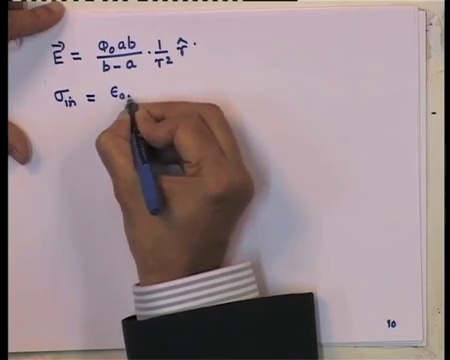 E⃗ = φ₀ab/(b-a) · 1/r² r̂.
σin = ε₀.
10